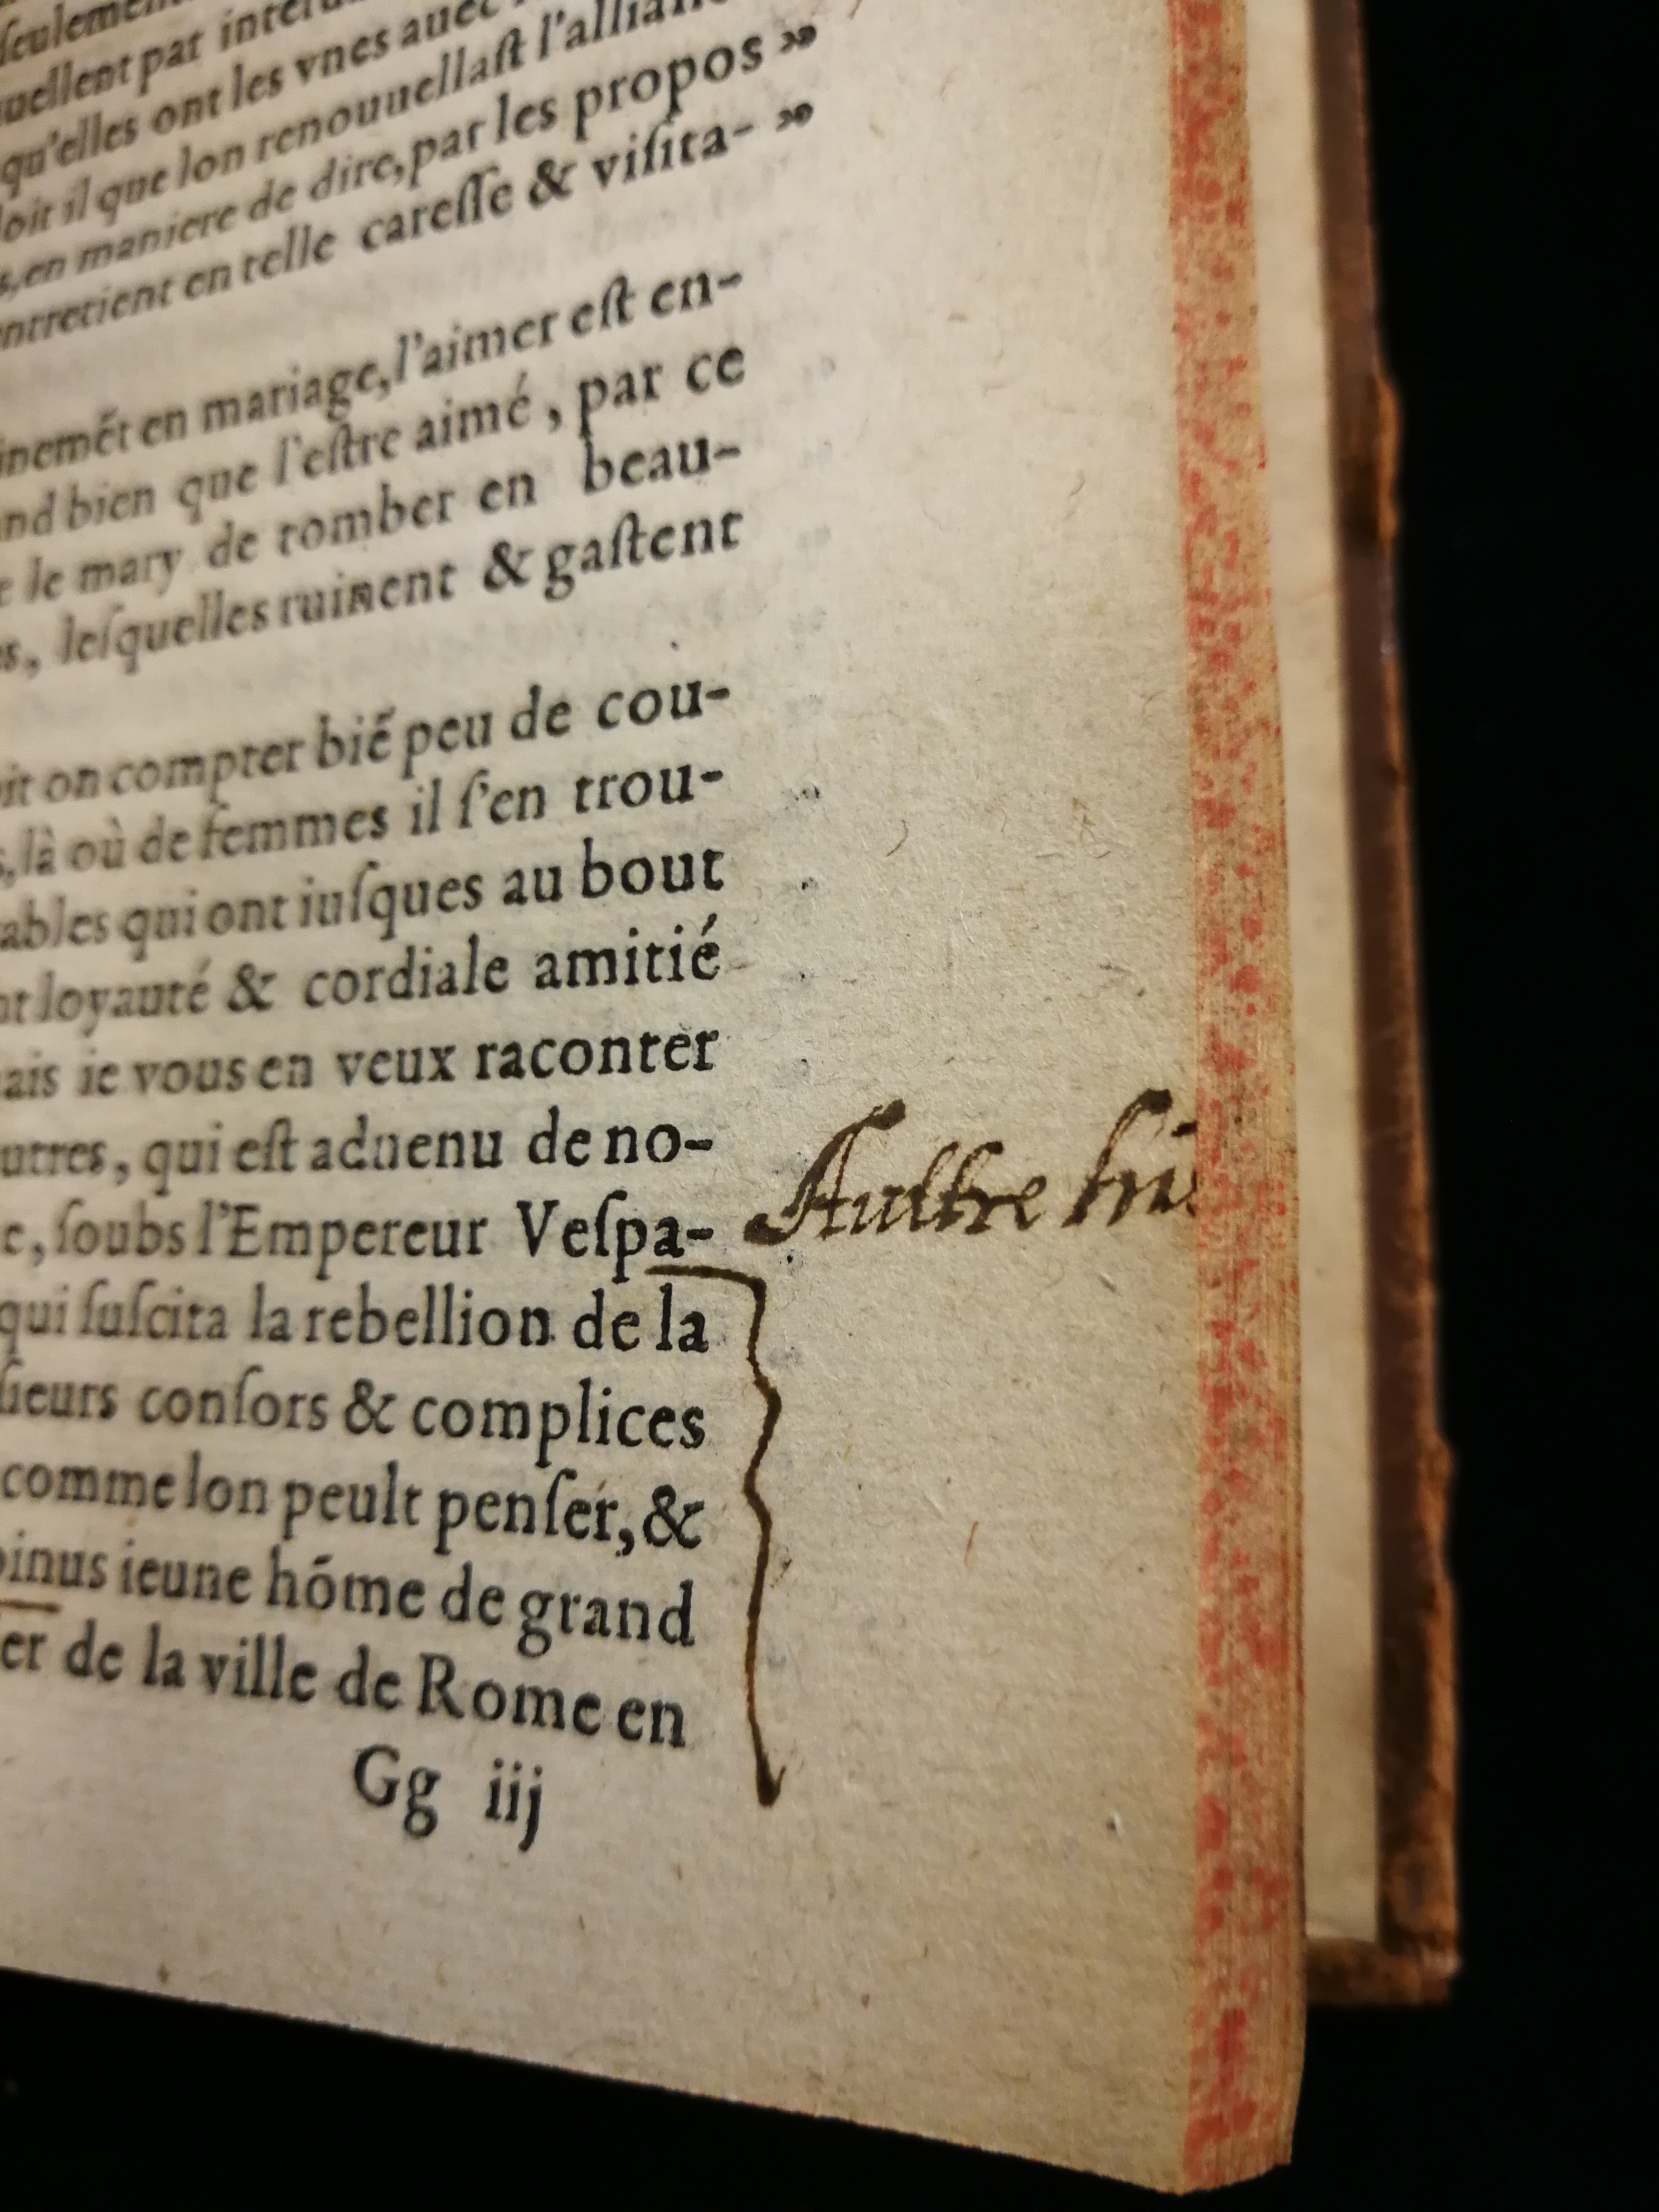 seulement
uellent par inter
qu'elles ont les vnes auec
loit il que lon renouuellaſt l'allian
s, en maniere de dire, par les propos »
entretient en telle careſſe & viſita- »
inemẽt en mariage, l'aimer eſt en-
nd bien que l'eſtre aimé, par ce
e le mary de tomber en beau-
es, leſquelles ruinent & gaſtent
oit on compter biẽ peu de cou-
s, là où de femmes il ſ'en trou-
ables qui ont iuſques au bout
nt loyauté & cordiale amitié
ais ie vous en veux raconter
utres, qui eſt aduenu de no-
e, ſoubs l'Empereur Veſpa-
Aultre his
qui ſuſcita la rebellion de la
ſieurs conſors & complices
comme lon peult penſer, &
binus ieune hõme de grand
er de la ville de Rome en
Gg iij